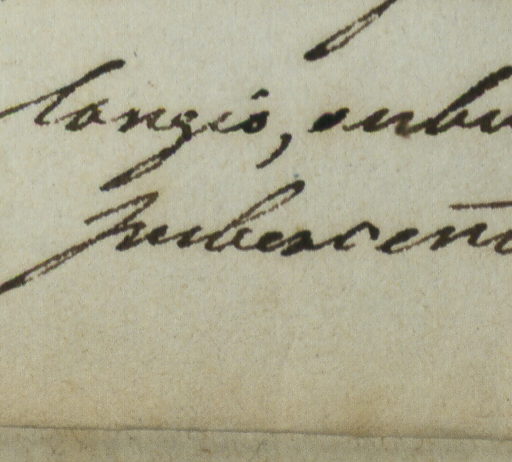 longis, subu
pubescen̄